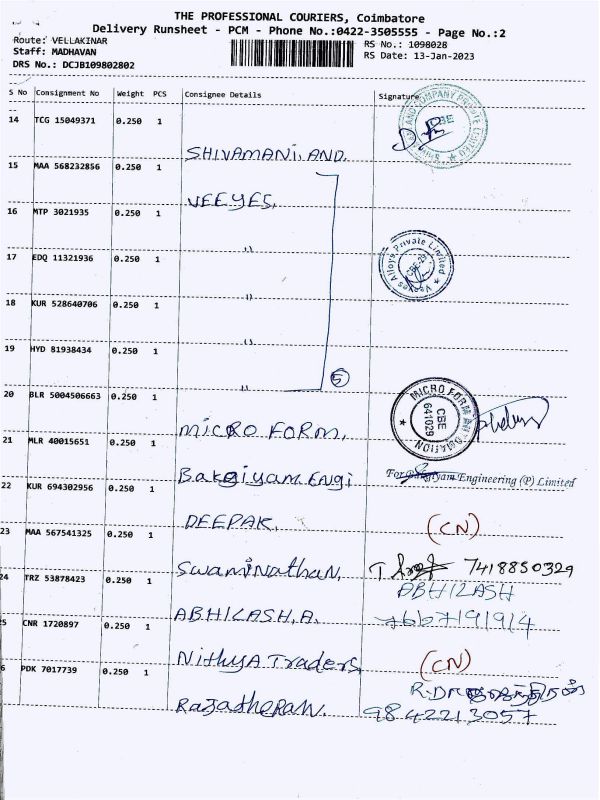 THE PROFESSIONAL COURIERS, Coimbatore
Delivery Runsheet - PCM - Phone No.:0422-3505555 - Page No.:2
Route: VELLAKINAR
Staff: MADHAVAN
DRS No.: DCJB109802802
RS No.: 1098028
RS Date: 13-Jan-2023
S No Consignment No Weight PCS Consignee Details Signature
14 TCG 15049371 0.250 1
SHIVAMANI.AND.
15 MAA 568232856 0.250 1
VEEYES.
16 MTP 3021935 0.250 1
17 EDQ 11321936 0.250 1
Veeyes Alloys Private Limited
18 KUR 528640706 0.250 1
19 HYD 81938434 0.250 1
5
20 BLR 5004506663 0.250 1
MICRO FORM.
MICRO FORM
CBE
641029
21 MLR 40015651 0.250 1
Bakgiyam Engi
For Bakgiyam Engineering (P) Limited
22 KUR 694302956 0.250 1
DEEPAK.
(CN)
23 MAA 567541325 0.250 1
Swaminathan.
7418850329
24 TRZ 53878423 0.250 1
ABHILASH.A.
ABHILASH
7667191914
5 CNR 1720897 0.250 1
Nithya Traders
(CN)
6 PDK 7017739 0.250 1
Rajatheran.
9842213057